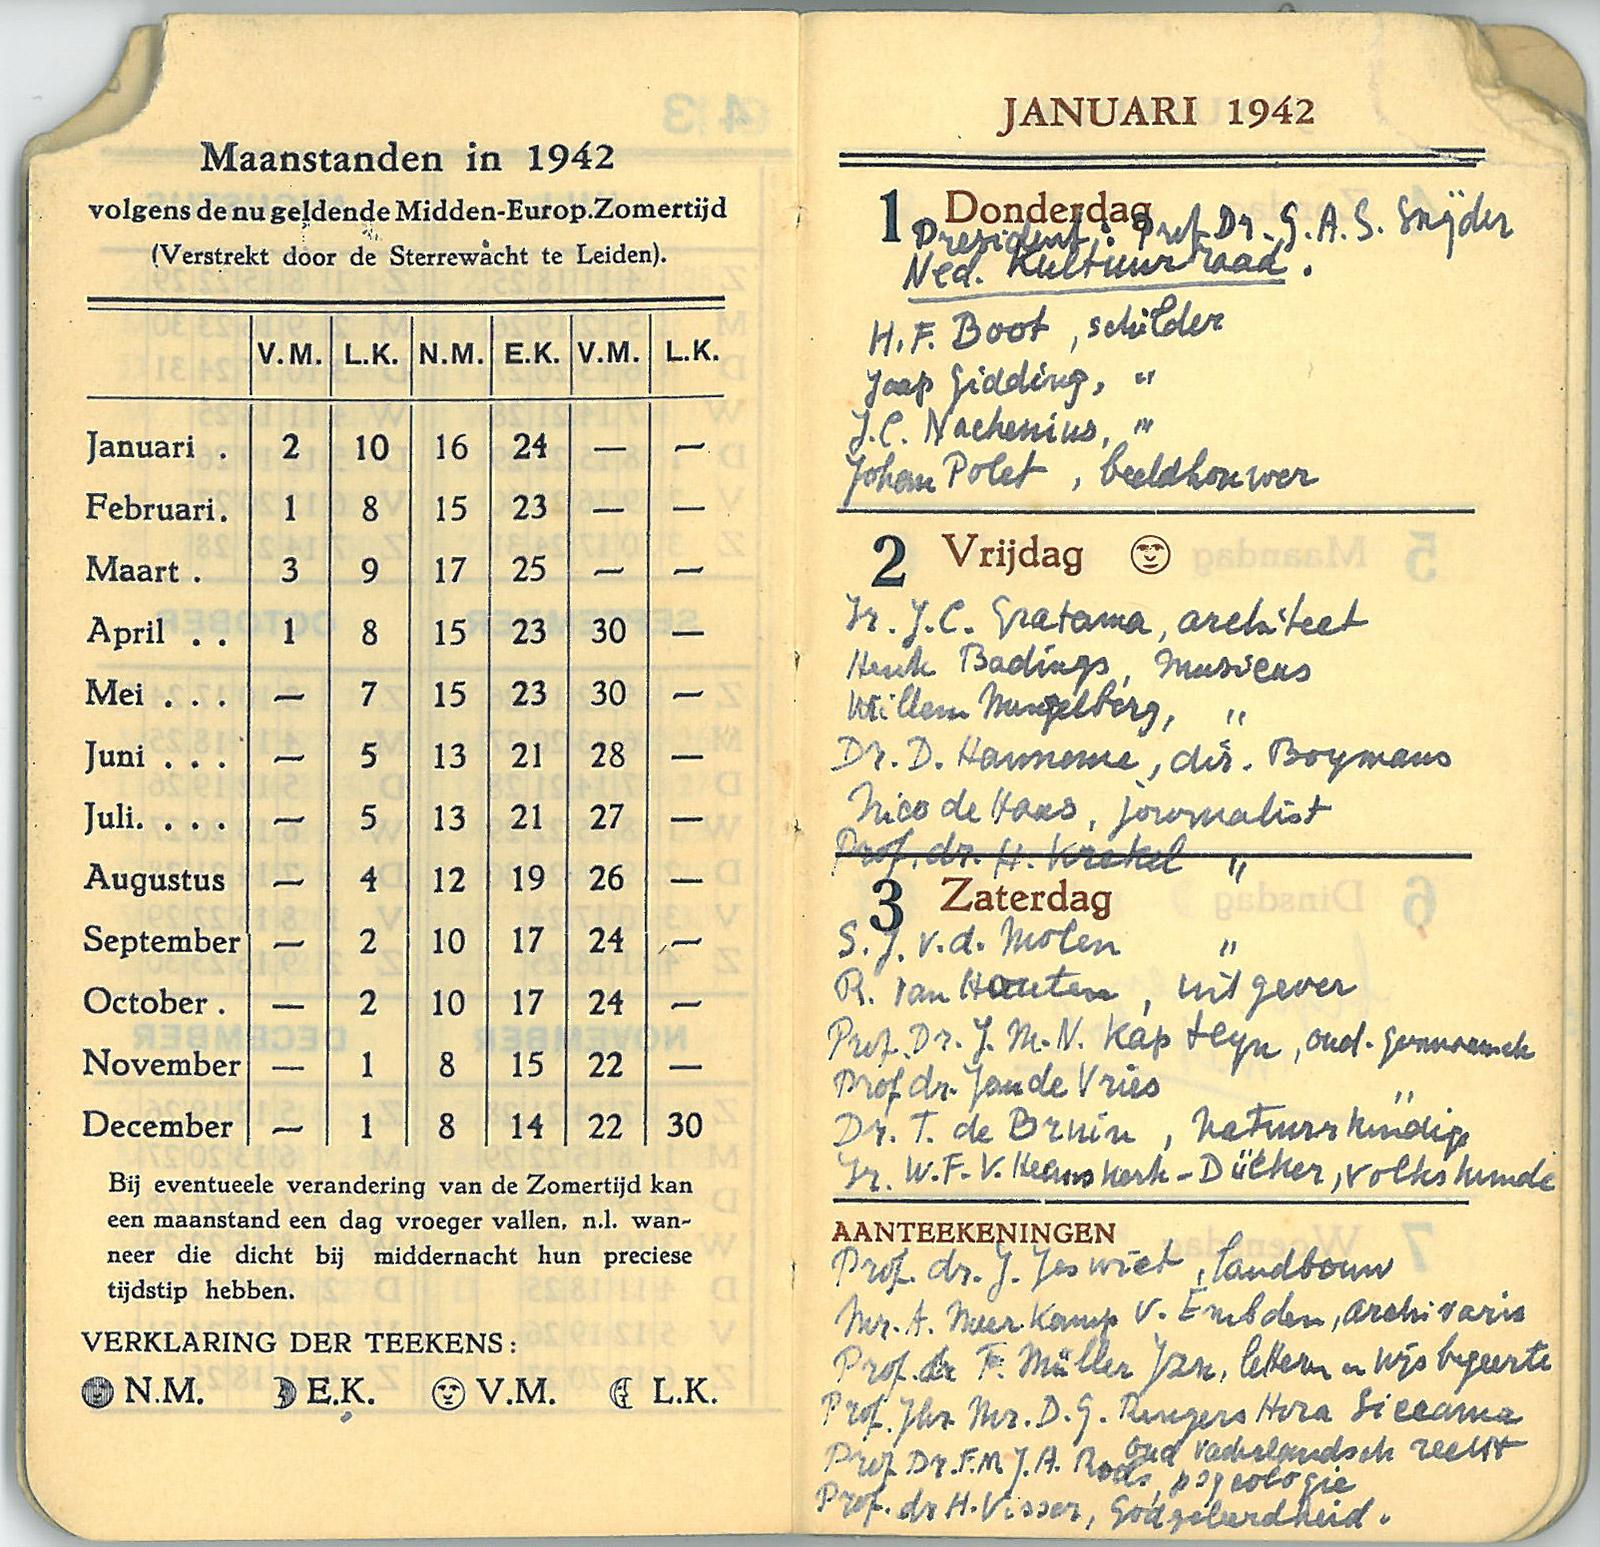 Maanstanden in 1942
volgens de nu geldende Midden-Europ.Zomertijd
(Verstrekt door de Sterrewacht te Leiden).
V.M. L.K. N.M. E.K. V.M. L.K.
Januari . 2 10 16 24 — —
Februari. 1 8 15 23 — —
Maart . 3 9 17 25 — —
April . . 1 8 15 23 30 —
Mei . . . — 7 15 23 30 —
Juni . . . — 5 13 21 28 —
Juli. . . . — 5 13 21 27 —
Augustus — 4 12 19 26 —
September — 2 10 17 24 —
October . — 2 10 17 24 —
November — 1 8 15 22 —
December — 1 8 14 22 30
Bij eventueele verandering van de Zomertijd kan
een maanstand een dag vroeger vallen, n.l. wan-
neer die dicht bij middernacht hun preciese
tijdstip hebben.
VERKLARING DER TEEKENS:
N.M. E.K. V.M. L.K.
JANUARI 1942
1 Donderdag
President: Prof. Dr. G.A.S. Snijder
Ned. Kultuurraad.
H.F. Boot, schilder
Jaap Gidding, "
J.C. Nachenius, "
Johan Polet, beeldhouwer
2 Vrijdag
Ir. J.C. Gratama, architect
Henk Badings, musicus
Willem Mengelberg, "
Dr. D. Hannema, dir. Boymans
Nico de Haas, journalist
Prof. dr. H. Krekel "
3 Zaterdag
S.J. v.d. Molen "
R. van Houten, uitgever
Prof. Dr. J.M.N. Kapteyn, oud-germaansch
Prof dr. Jan de Vries "
Dr. T. de Bruin, natuurkundige
Jr. W.F. v. Heemskerk-Düker, volkskunde
AANTEEKENINGEN
Prof. dr. J. Jeswiet, landbouw
Mr. A. Meerkamp v. Embden, archivaris
Prof. dr F. Müller Jzn, letteren en wijsbegeerte
Prof. Jhr. Mr. D.G. Rengers Hora Siccama
oud vaderlandsch recht
Prof Dr. F.M.J.A. Roels, psychologie
Prof. dr H. Visser, Godgeleerdheid.